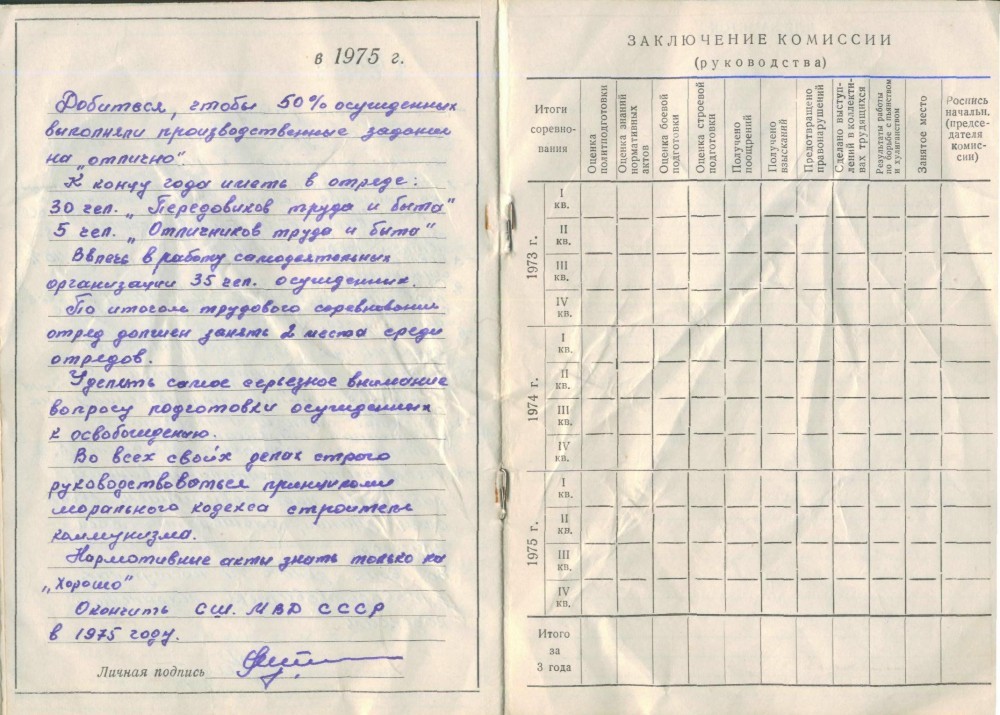 в 1975 г.
Добиться, чтобы 50% осужденных
выполняли производственные задания
на „отлично".
К концу года иметь в отряде:
30 чел. „Передовиков труда и быта"
5 чел. „Отличников труда и быта"
Вовлечь в работу самодеятельных
организации 35 чел. осужденных.
По итогам трудового соревнования
отряд должен занять 2 места среди
отрядов.
Уделить самое серьезное внимание
вопросу подготовки осужденных
к освобождению.
Во всех своих делах строго
руководствоваться принципами
морального кодекса строителя
коммунизма.
Нормативные акты знать только на
„хорошо"
Окончить СШ. МВД СССР
в 1975 году.
Личная подпись
ЗАКЛЮЧЕНИЕ КОМИССИИ
(руководства)
Итоги
соревно-
вания
Оценка
политподготовки
Оценка знаний
нормативных
актов
Оценка боевой
подготовки
Оценка строевой
подготовки
Получено
поощрений
Получено
взысканий
Предотвращено
правонарушений
Сделано выступ-
лений в коллекти-
вах трудящихся
Результаты работы
по борьбе с пьянством
и хулиганством
Занятое место
Роспись
начальн.
(предсе-
дателя
комис-
сии)
1973 г.
I
кв.
II
кв.
III
кв.
IV
кв.
1974 г.
I
кв.
II
кв.
III
кв.
IV
кв.
1975 г.
I
кв.
II
кв.
III
кв.
IV
кв.
Итого
за
3 года